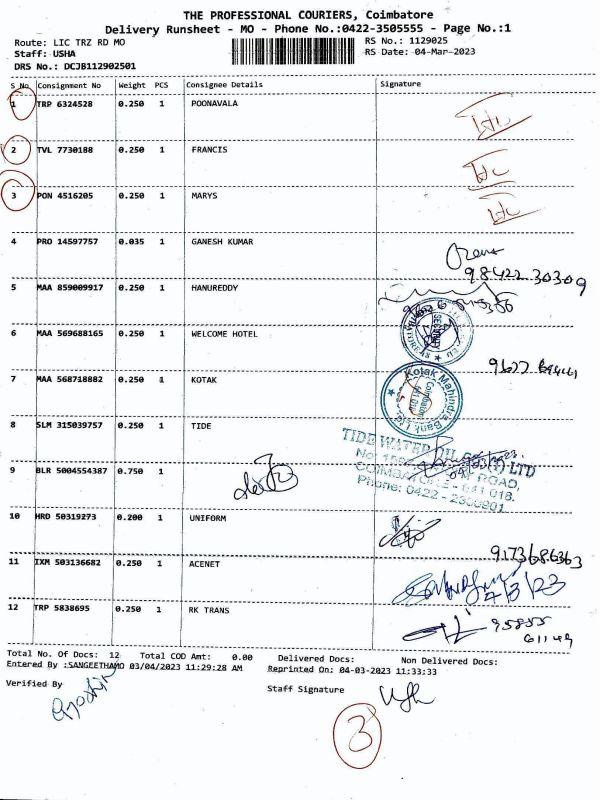 THE PROFESSIONAL COURIERS, Coimbatore
Delivery Runsheet - MO - Phone No.:0422-3505555 - Page No.:1
Route: LIC TRZ RD MO
RS No.: 1129025
Staff: USHA
RS Date: 04-Mar-2023
DRS No.: DCJB112902501
S No Consignment No Weight PCS Consignee Details Signature
1 TRP 6324528 0.250 1 POONAVALA
2 TVL 7730188 0.250 1 FRANCIS
3 PON 4516205 0.250 1 MARYS
4 PRO 14597757 0.035 1 GANESH KUMAR
98422 30309
5 MAA 859009917 0.250 1 HANUREDDY
6 MAA 569688165 0.250 1 WELCOME HOTEL
SECURITY
7 MAA 568718882 0.250 1 KOTAK
Kotak Mahindra Bank Ltd.
Coimbatore
8 SLM 315039757 0.250 1 TIDE
TIDE WATER OIL CO (I) LTD
ROAD,
COIMBATORE - 641 018.
Phone: 0422 - 2300901
9 BLR 5004554387 0.750 1
10 HRD 50319273 0.200 1 UNIFORM
9173686363
11 IXM 503136682 0.250 1 ACENET
4/3/23
12 TRP 5838695 0.250 1 RK TRANS
95855
61149
Total No. Of Docs: 12 Total COD Amt: 0.00 Delivered Docs: Non Delivered Docs:
Entered By :SANGEETHAMO 03/04/2023 11:29:28 AM Reprinted On: 04-03-2023 11:33:33
Verified By
Staff Signature
3